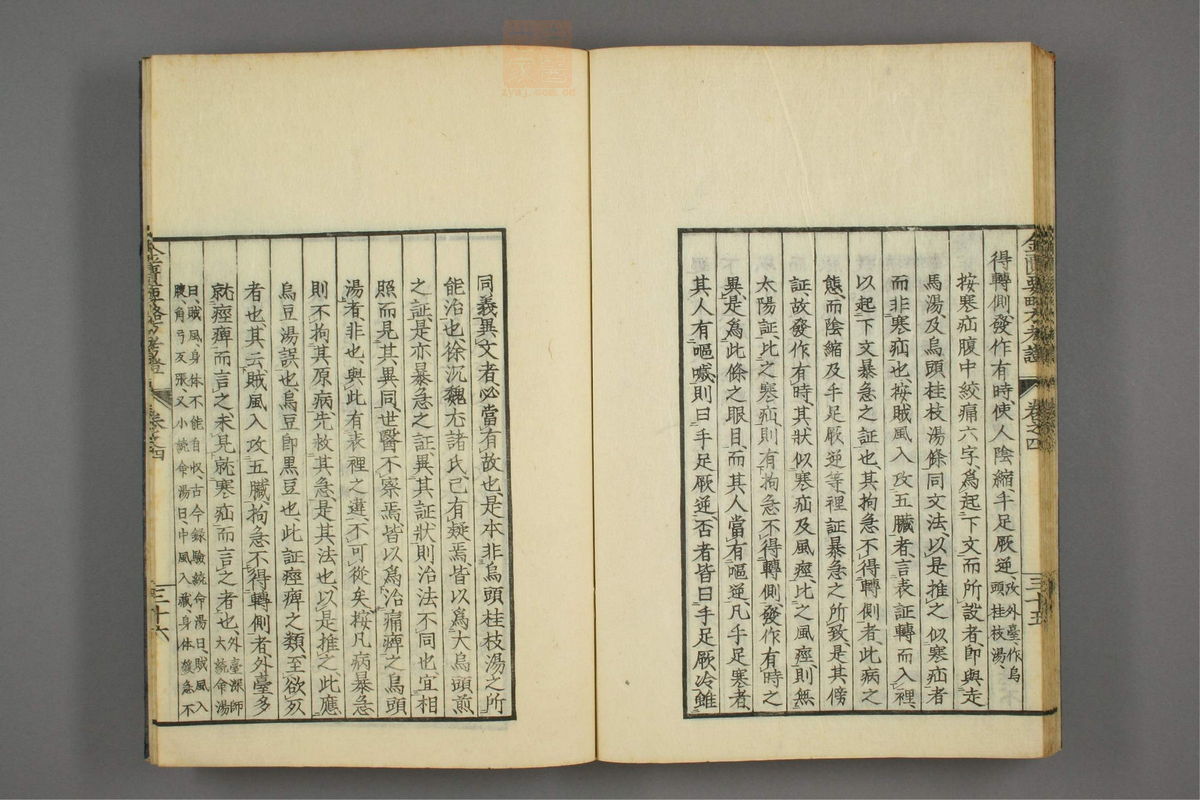 得轉側發作有時使人陰縮手足厥逆攷外臺作烏頭桂枝湯
按寒疝腹中絞痛六字爲起下文而所設者即與走
馬湯及烏頭桂枝湯條同文法以是推之似寒疝者
而非寒疝也按賊風入攻五臟者言表証轉而入裡
以起下文暴急之証也其拘急不得轉側者此病之
態而陰縮及手足厥逆等裡証暴急之所致是其傍
証故發作有時其狀似寒疝及風痙比之風痙則無
太陽証比之寒疝則有拘急不得轉側發作有時之
異是爲此條之眼目而其人當有嘔逆凡手足寒者
其人有嘔噦則曰手足厥逆否者皆曰手足厥冷雖
金匱要略方考證
卷之四
三十五
同義異文者必當有故也是本非烏頭桂枝湯之所
能治也徐沉魏尤諸氏已有疑焉皆以爲大烏頭煎
之証是亦暴急之証異其証狀則治法不同也宜相
照而見其異同世醫不察焉皆以爲治痛痺之烏頭
湯者非也與此有表裡之違不可從矣按凡病暴急
則不拘其原病先救其急是其法也以是推之此應
烏豆湯誤也烏豆即黑豆也此証痙痺之類至欲死
者也其云賊風入攻五臟拘急不得轉側者外臺多
就痙痺而言之未見就寒疝而言之者也外臺深師大續命湯
曰賊風身体不能自收古今錄驗續命湯曰賊風入
腹角弓反張又小續命湯曰中風入臟身体緩急不
金匱要略方考證
卷之四
三十六